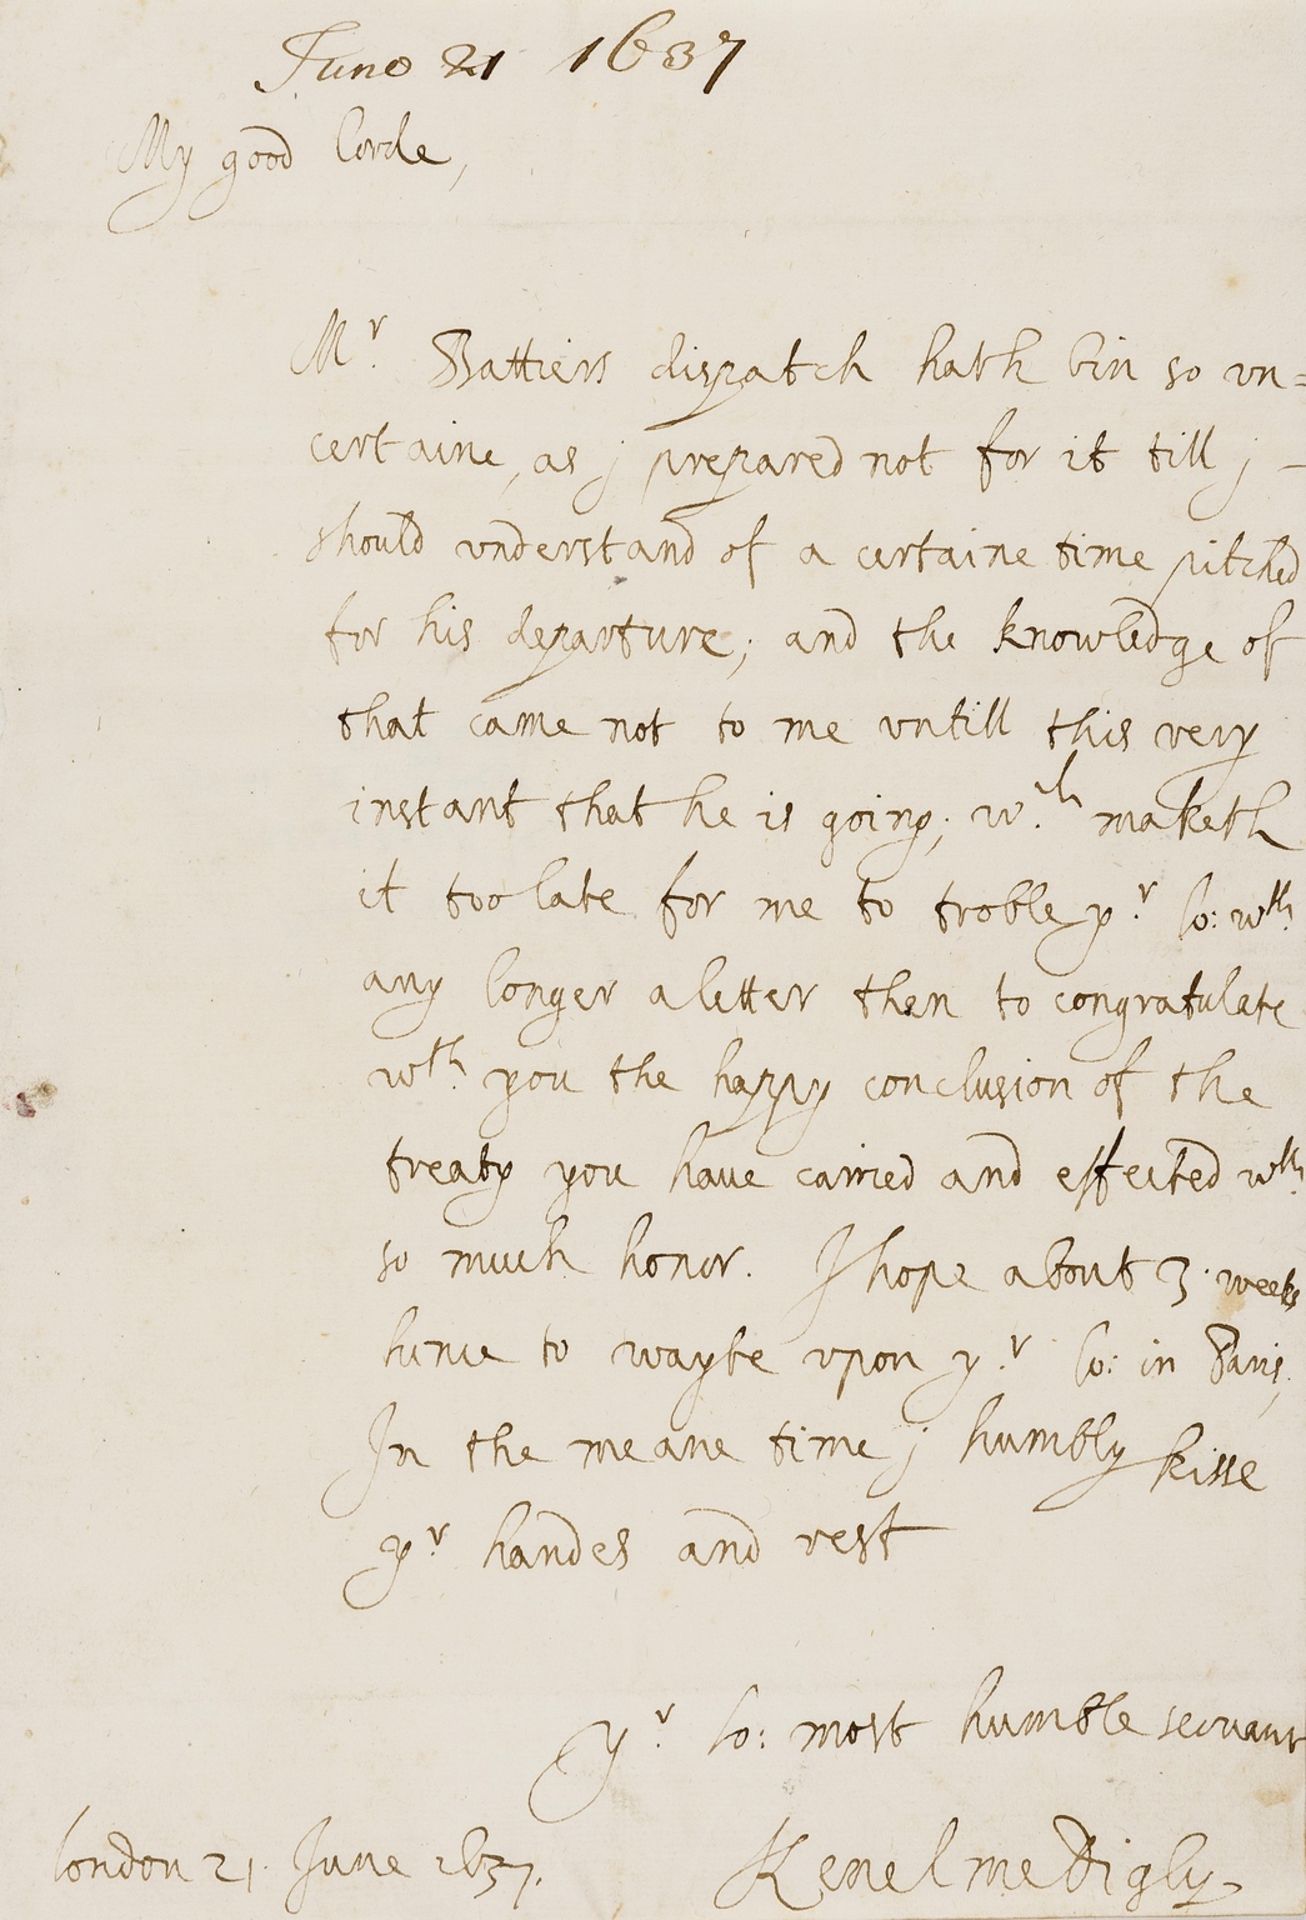 June 21 1637
My good Lorde,
Mr. Battiers dispatch hath bin so vn=
certaine, as j prepared not for it till j -
should vnderstand of a certaine time pitched
for his departure; and the knowledge of
that came not to me vntill this very
instant that he is going; wch. maketh
it too late for me to troble yr. Lo: wth.
any longer a letter then to congratulate
wth. you the happy conclusion of the
treaty you haue carried and effected wth.
so much honor. I hope about 3. weekes
hence to wayte vpon yr. Lo: in Paris;
In the meane time j humbly kisse
yr. handes and rest
yr. Lo: most humble seruant
London 21. June 1637. Kenelme Digby